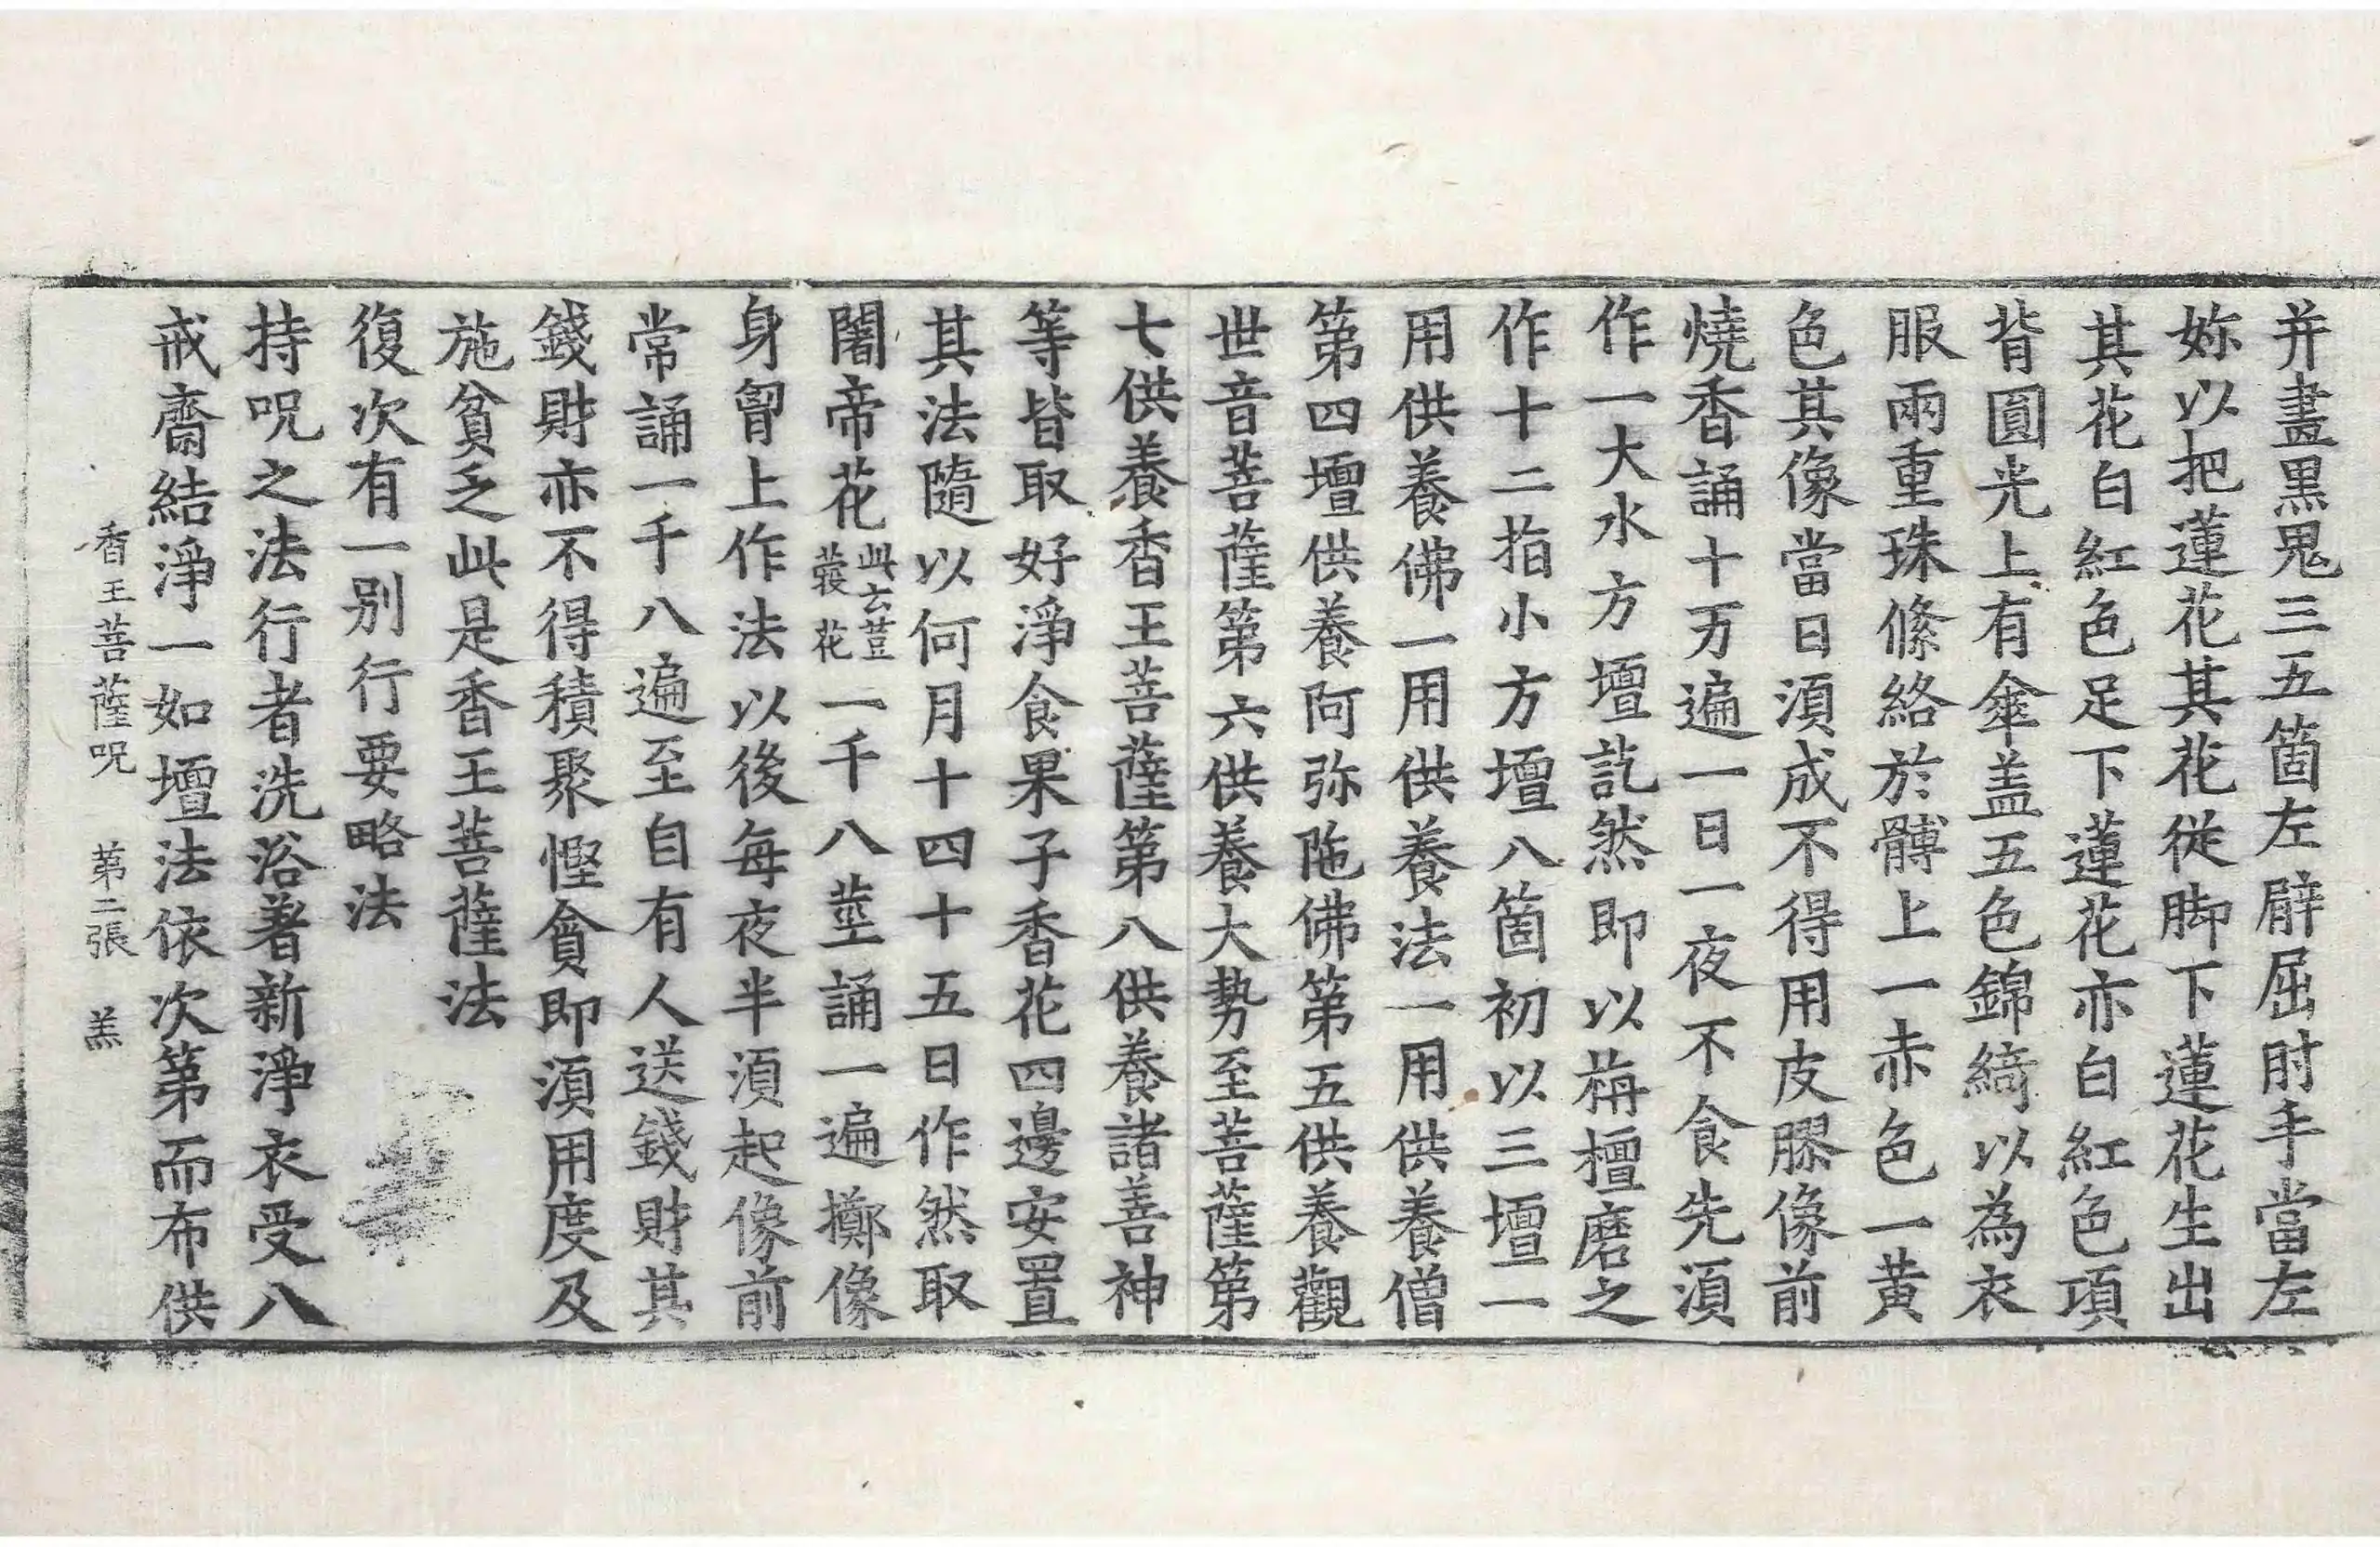 并畫黑鬼三五箇左臂屈肘手當左
妳以把蓮花其花從脚下蓮花生出
其花白紅色足下蓮花亦白紅色項
背圓光上有傘盖五色錦綺以為衣
服兩重珠絛絡於髆上一赤色一黄
色其像當日湏成不得用皮膠像前
燒香誦十万遍一日一夜不食先湏
作一大水方壇訖然即以栴檀磨之
作十二指小方壇八箇初以三壇一
用供養佛一用供養法一用供養僧
第四壇供養阿弥陁佛第五供養觀
世音菩薩第六供養大勢至菩薩第
七供養香王菩薩第八供養諸善神
等皆取好淨食果子香花四邊安置
其法隨以何月十四十五日作然取
闍帝花此云荳蔲花一千八莖誦一遍擲像
身胷上作法以後每夜半湏起像前
常誦一千八遍至自有人送錢財其
錢財亦不得積聚慳貪即湏用度及
施貧乏此是香王菩薩法
復次有一别行要略法
持呪之法行者洗浴著新淨衣受八
戒齋結淨一如壇法依次第而布供
香王菩薩呪 第二張 羔